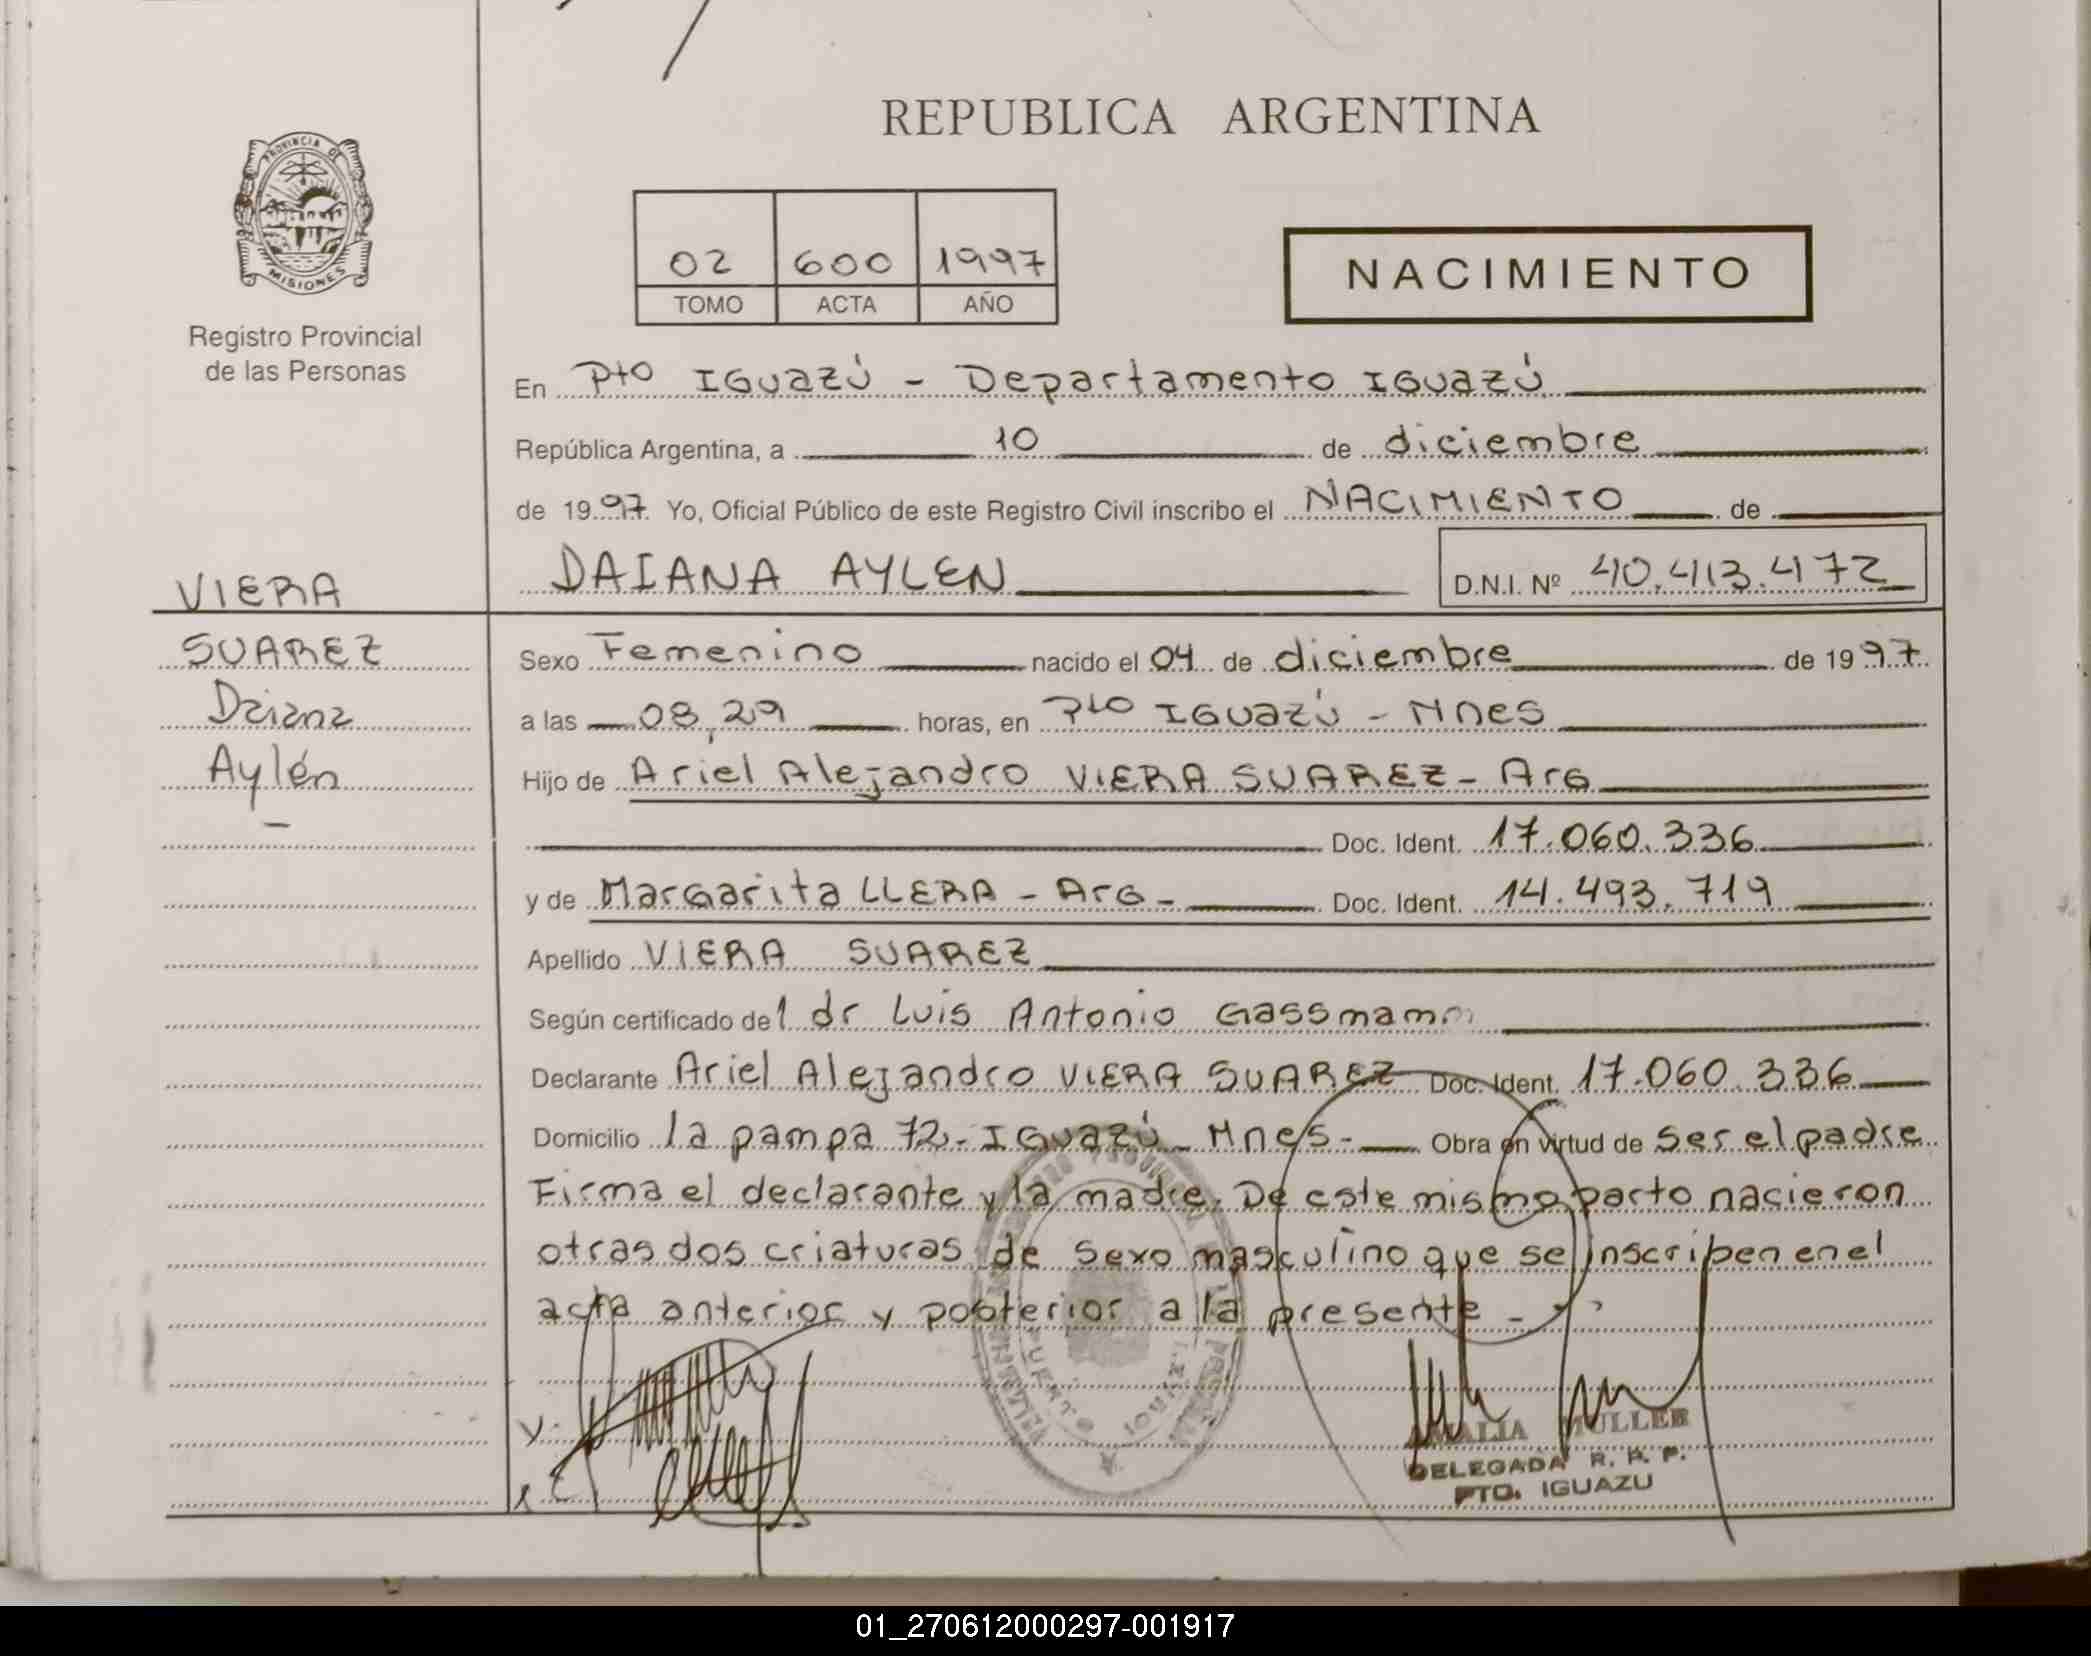 REPUBLICA ARGENTINA
PROVINCIA DE
MISIONES
Registro Provincial
de las Personas
02 600 1997
TOMO ACTA AÑO
NACIMIENTO
En Pto IGUAZÚ - Departamento IGUAZÚ
República Argentina, a 10 de diciembre
de 1997 Yo, Oficial Público de este Registro Civil inscribo el NACIMIENTO de
DAIANA AYLEN D.N.I. Nº 40.413.472
VIERA
SUAREZ
Daiana
Aylén
Sexo Femenino nacido el 04 de diciembre de 1997
a las 08,29 horas, en Pto IGUAZÚ - Mnes
Hijo de Ariel Alejandro VIERA SUAREZ - Arg
Doc. Ident. 17.060.336
y de Margarita LLERA - Arg - Doc. Ident. 14.493.719
Apellido VIERA SUAREZ
Según certificado del dr Luis Antonio Gassmann
Declarante Ariel Alejandro VIERA SUAREZ Doc. Ident. 17.060.336
Domicilio la pampa 72 - IGUAZÚ - Mnes - Obra en virtud de ser el padre
Firma el declarante y la madre. De este mismo parto nacieron
otras dos criaturas de sexo masculino que se inscriben en el
acta anterior y posterior a la presente -
PUERTO IGUAZU
AMALIA MULLER
DELEGADA R. P. P.
PTO. IGUAZU
01_270612000297-001917